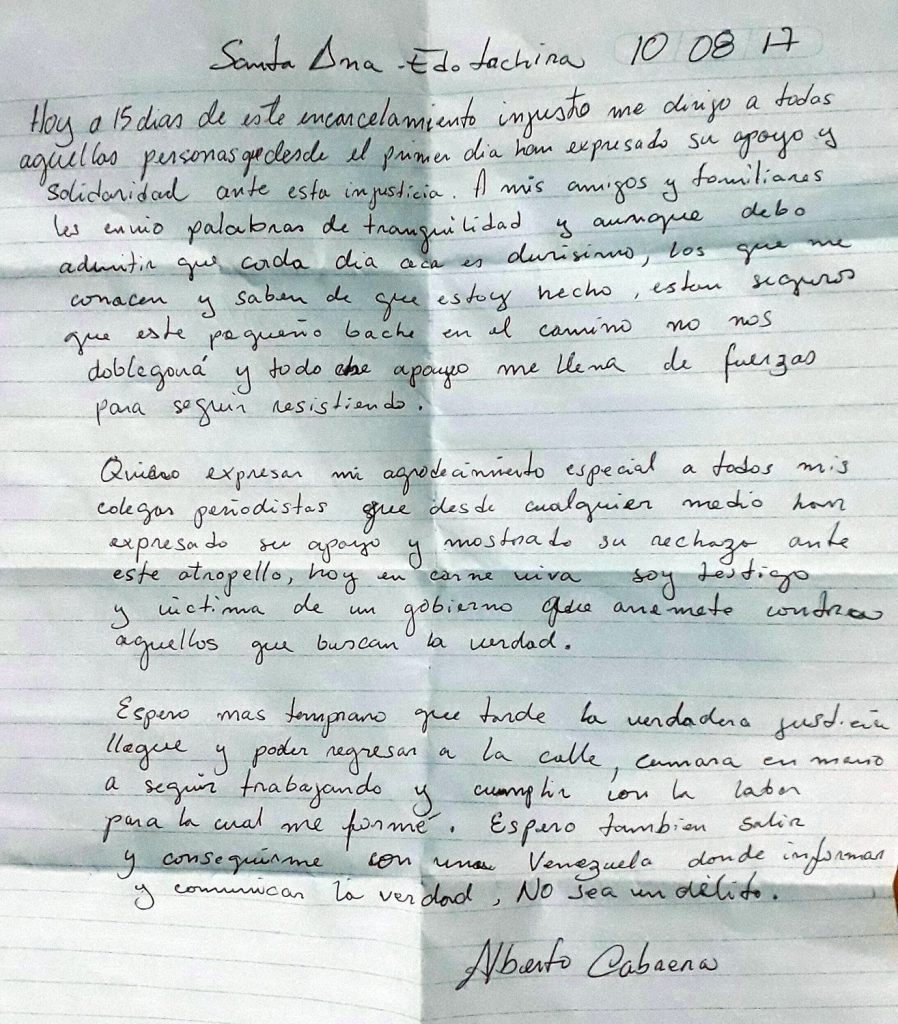 Santa Ana - Edo tachira 10 08 17
Hoy a 15 dias de este encarcelamiento injusto me dirijo a todas
aquellas personas qe desde el primer dia han expresado su apoyo y
solidaridad ante esta injusticia. A mis amigos y familiares
les envio palabras de tranquilidad y aunque debo
admitir que cada dia aca es durisimo, los que me
conocen y saben de que estoy hecho, estan seguros
que este pequeño bache en el camino no nos
doblegará y todo ese apoyo me llena de fuerzas
para seguir resistiendo.
Quiero expresar mi agradecimiento especial a todos mis
colegas periodistas que desde cualquier medio han
expresado su apoyo y mostrado su rechazo ante
este atropello, hoy en carne viva soy testigo
y victima de un gobierno que arremete contra
aquellos que buscan la verdad.
Espero mas temprano que tarde la verdadera justicia
llegue y poder regresar a la calle, camara en mano
a seguir trabajando y cumplir con la labor
para la cual me formé. Espero tambien salir
y conseguirme con una Venezuela donde informar
y comunicar la verdad, NO sea un delito.
Alberto Cabrera